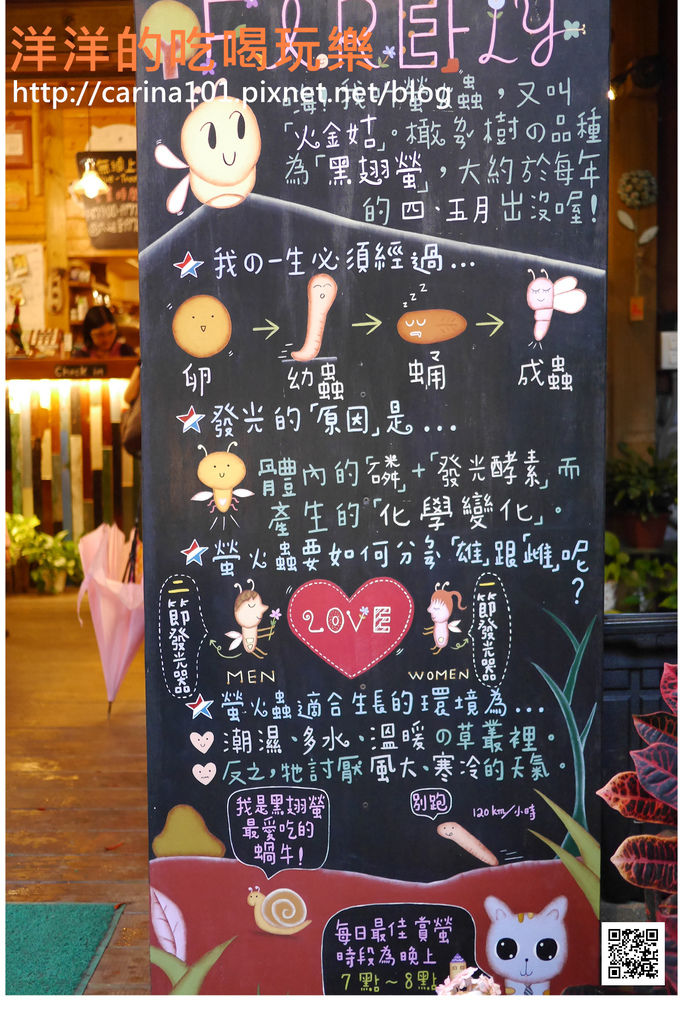 FIREFLY
洋洋的吃喝玩樂
http://carina101.pixnet.net/blog
嗨!我是螢火蟲,又叫
「火金姑」。橄欖樹の品種
為「黑翅螢」,大約於每年
的四、五月出沒喔!
我の一生必須經過...
卵
幼蟲
蛹
zzz
成蟲
Check in
發光的「原因」是...
體內的「磷」+「發光酵素」而
產生的「化學變化」。
螢火蟲要如何分為「雄」跟「雌」呢
?
二節發光器
LOVE
一節發光器
MEN
WOMEN
螢火蟲適合生長的環境為...
潮濕、多水、溫暖の草叢裡。
反之,牠討厭風大、寒冷的天氣。
我是黑翅螢
最愛吃的
蝸牛!
別跑
120km/小時
每日最佳賞螢
時段為晚上
7點~8點